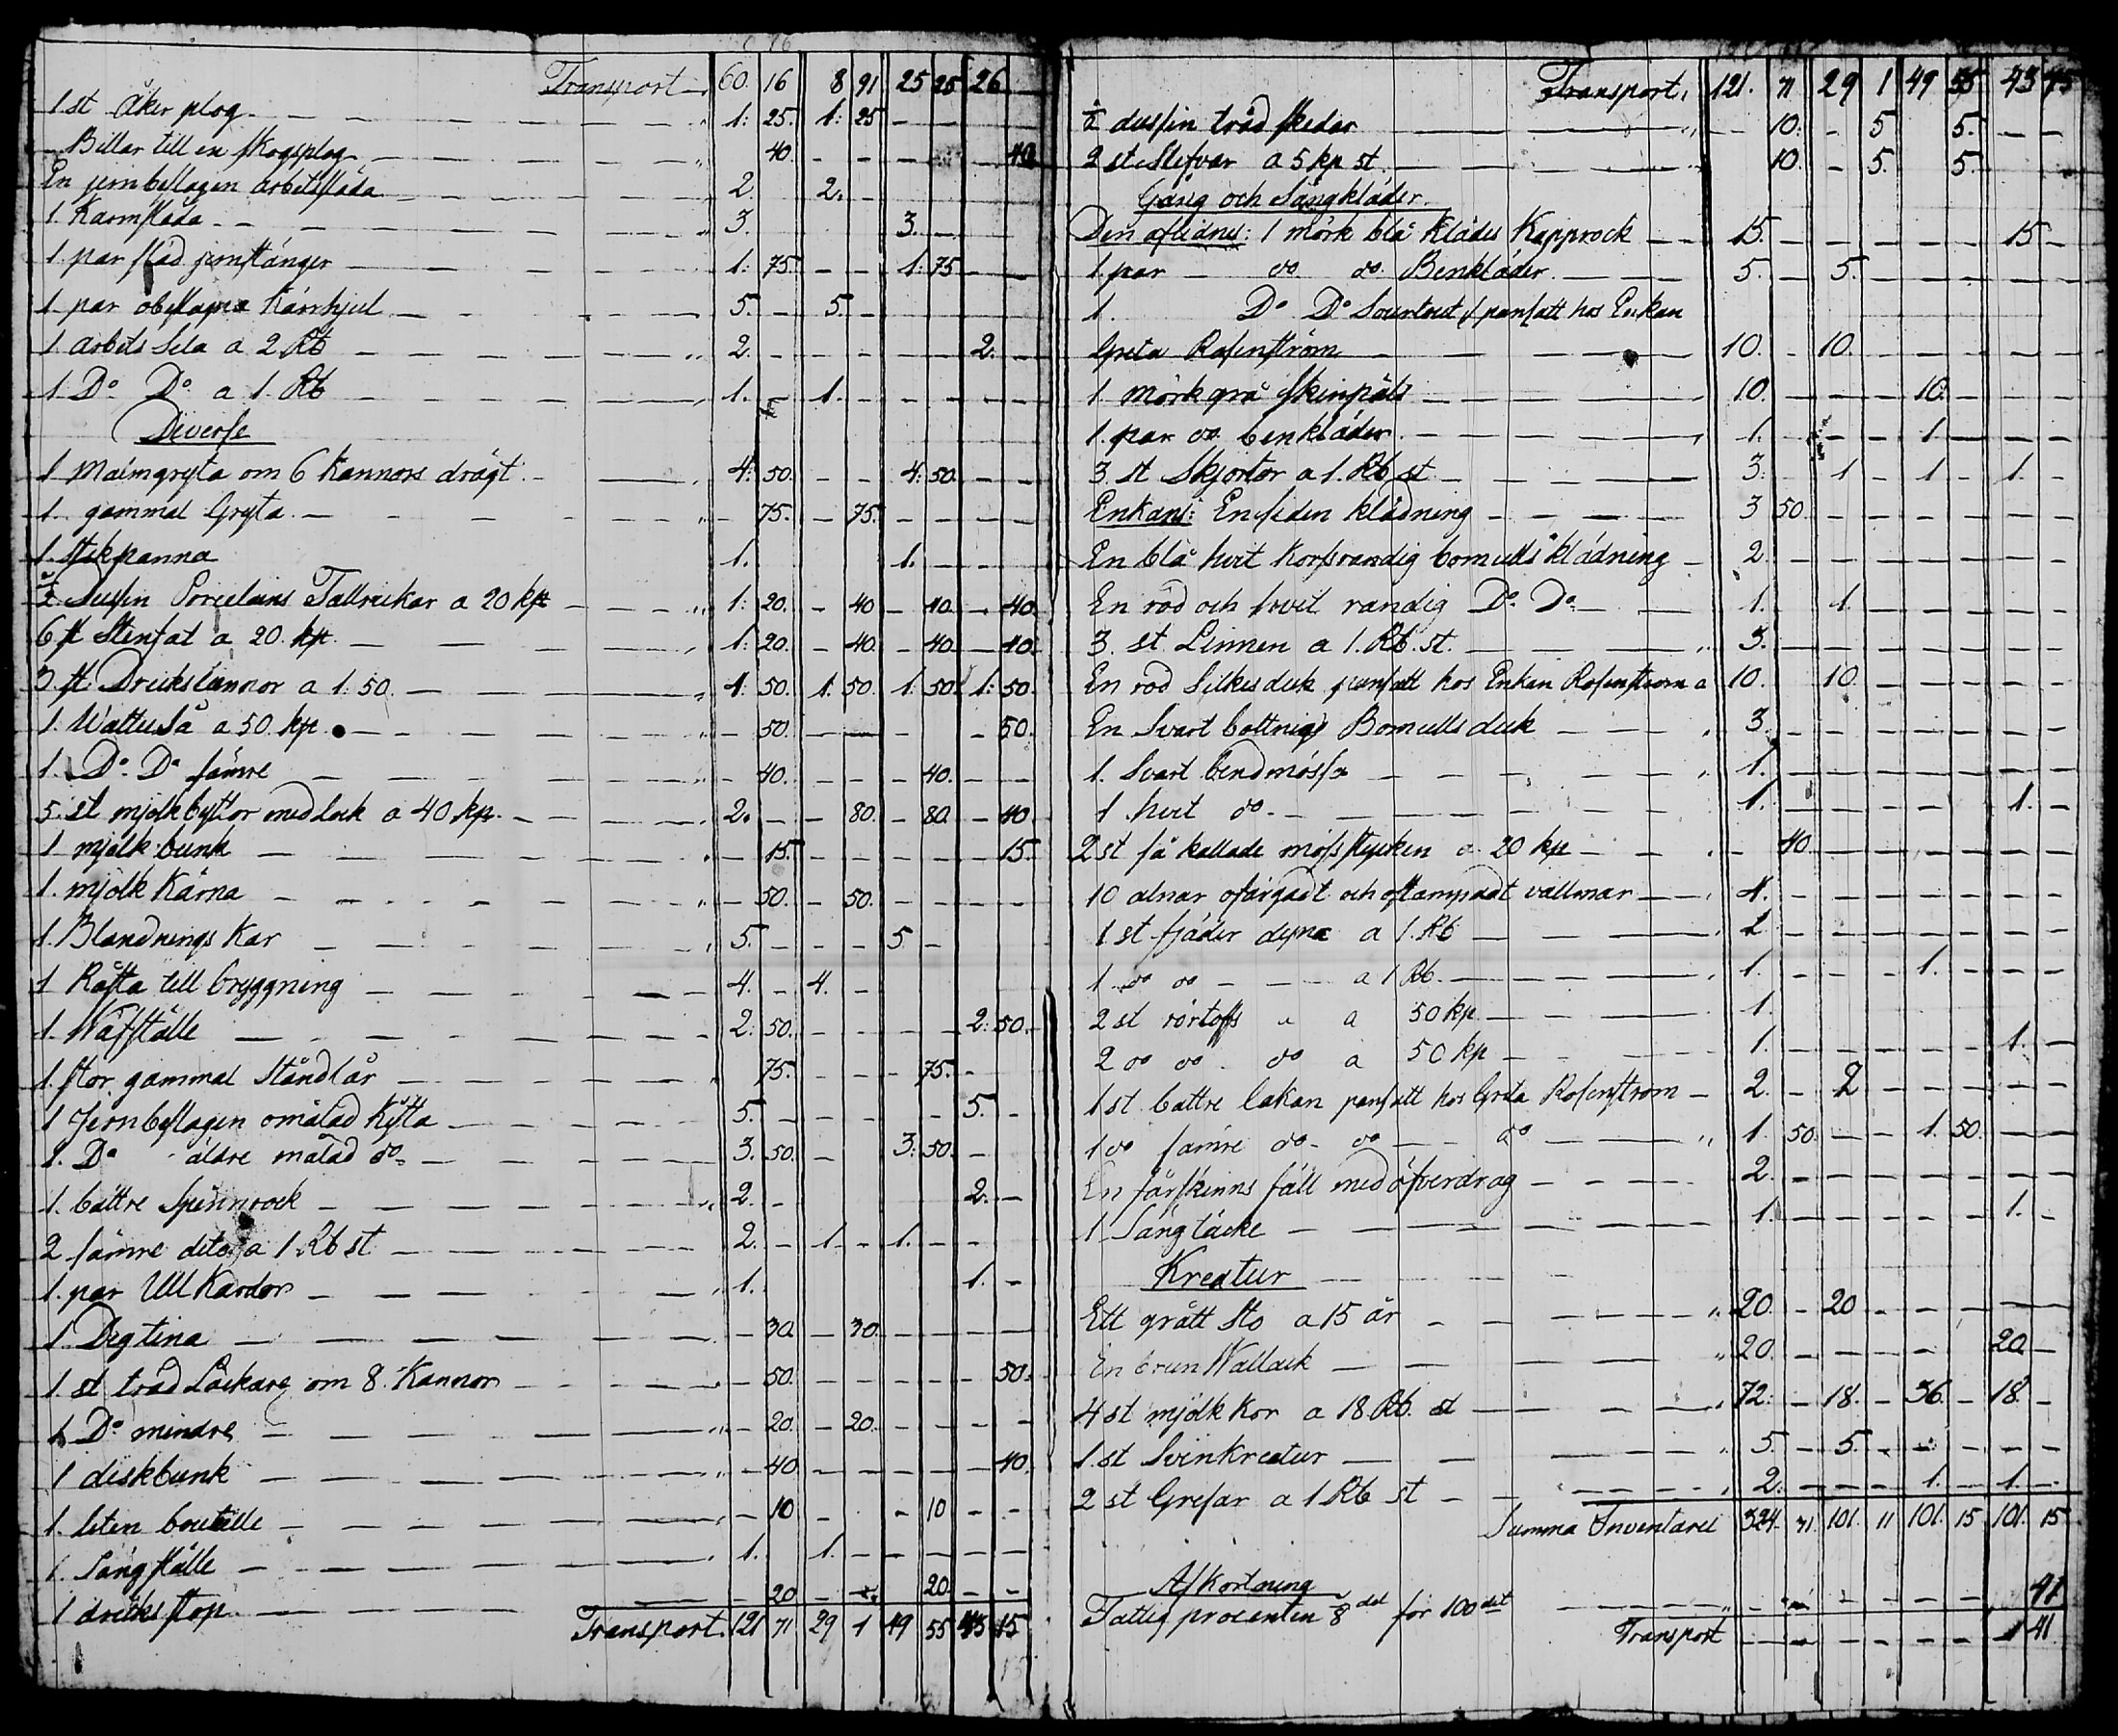 Transport 60. 16 8 91 25 25 26
1 st åker plog 1: 25. 1: 25
Billar till en skogsplog 40. 40
En jernbeslagen arbetsslåda 2. 2.
1. Karmslåda 3. 3.
1. par slåd jernstånger 1: 75. 1: 75
1. par obeslagna Kärrhjul 5. 5.
1 arbets Sela a 2 Rb 2. 2.
1 Do Do a 1. Rb 1. 1.
Diverse
1 Malmgryta om 6 Kannors drägt 4: 50. 4: 50.
1. gammal Gryta 75. 75.
1. Stekpanna 1. 1.
½ Dussin Porcelains Tallrickar a 20 kp 1: 20. 40 40. 40.
6 st Stenfat a 20. kp. 1: 20. 40. 40. 40.
3 st. Drickskannor a 1: 50. 4: 50. 1. 50. 1. 50. 1: 50.
1. Wattuså a 50. kp. 50. 50.
1. Do. Do sämre 40. 40.
5. st mjölkbyttor med lock a 40 kp. 2. 80. 80. 40
1 mjölk bunk 15. 15.
1. mjölk Kärna 50. 50.
1. Blandnings Kar 5. 5
1 Råsta till bryggning 4. 4.
1. Wäfställe 2. 50. 2: 50.
1. stor gammal Ståndlår 75. 75.
1 Jernbeslagen omålad Kista 5. 5.
1. Do äldre målad do 3. 50. 3: 50.
1. bättre Spinnrock 2. 2.
2 sämre dito a 1 Rb st 2. 1 1.
1. par Ull Kardor 1. 1.
1 Degtina 30. 30
1. st träd Läckare om 8. Kannor 50. 50.
1. Do mindre 20. 20.
1 diskbunk 40 40.
1. liten boutelle 10 10
1. Sängställe 1. 1.
1 dricks stop 20 20.
Transport. 121 71 29 1 49 55 43 15
Transport, 121. 71 29 1 49 55 43 15
½ dussin träd skedar 10. 5 5.
2 st Slefvar a 5 kp st 10. 5. 5.
Gång och Sängkläder.
Den aflidnes: 1 mörk blå Klädes Kapprock 15. 15
1. par do do Benkläder 5. 5.
1. Do Do Sourtout pansatt hos Enkan
Greta Rosenström 10. 10.
1. mörk grå Skinpäls 10. 10.
1. par do benkläder 1. 1.
3. st Skjortor a 1. Rb st 3. 1 1 1.
Enkans: En siden klädning 3 50
En blå hvit Korsrandig bomulls klädning 2.
En röd och hvit randig Do. Do 1. 1.
3. st Linnen a 1. Rb. st. 3.
En röd Silkes duk pansatt hos Enkan Rosenström a 10. 10
En Svart bottnig Bomulls duk 3.
1. Svart bindmössa 1.
1 hvit do 1. 1.
2 st så kallade mösstycken a 20 kp 40
10 alnar ofärgadt och ostampadt vallmar 4.
1 st fjäder dyna a 1. Rb 1
1 do do a 1 Rb. 1. 1.
2 st a 50 kp 1.
2 do do do a 50 kp 1. 1.
1 st. bättre lakan pansatt hos Greta Rosenström 2. 2
1 do sämre do do do 1. 50. 1. 50.
En fårskinns fäll med öfverdrag 2.
1 Sängtäcke 1. 1.
Kreatur
Ett grått Sto a 15 år 20. 20
En brun Wallack 20. 20
4 st mjölk kor a 18 Rb. st 72. 18. 36. 18.
1. st Svinkreatur 5. 5.
2 st Grefar a 1 Rb st 2. 1. 1.
Summa Inventariet 324. 71. 101. 11 101. 15 101. 15
Afkortning
Fattig procenten 8 del för 100 det 41
Transport 41